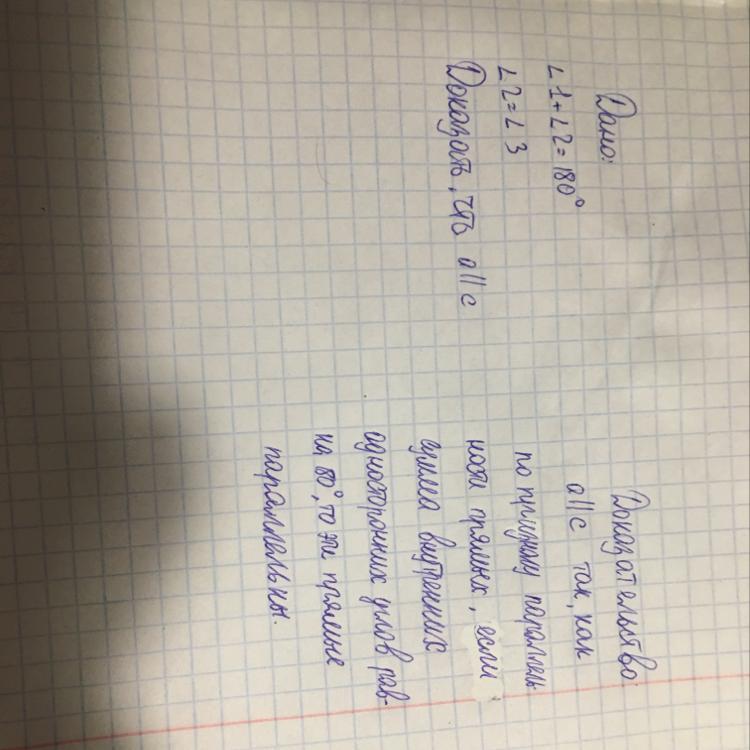 Дано:
∠1+∠2=180°
∠2=∠3
Доказать, что a||c
Доказательство:
a||c так, как
по признаку параллель
ности прямых, если
сумма внутренних
односторонних углов рав-
на 80°, то эти прямые
параллельны.